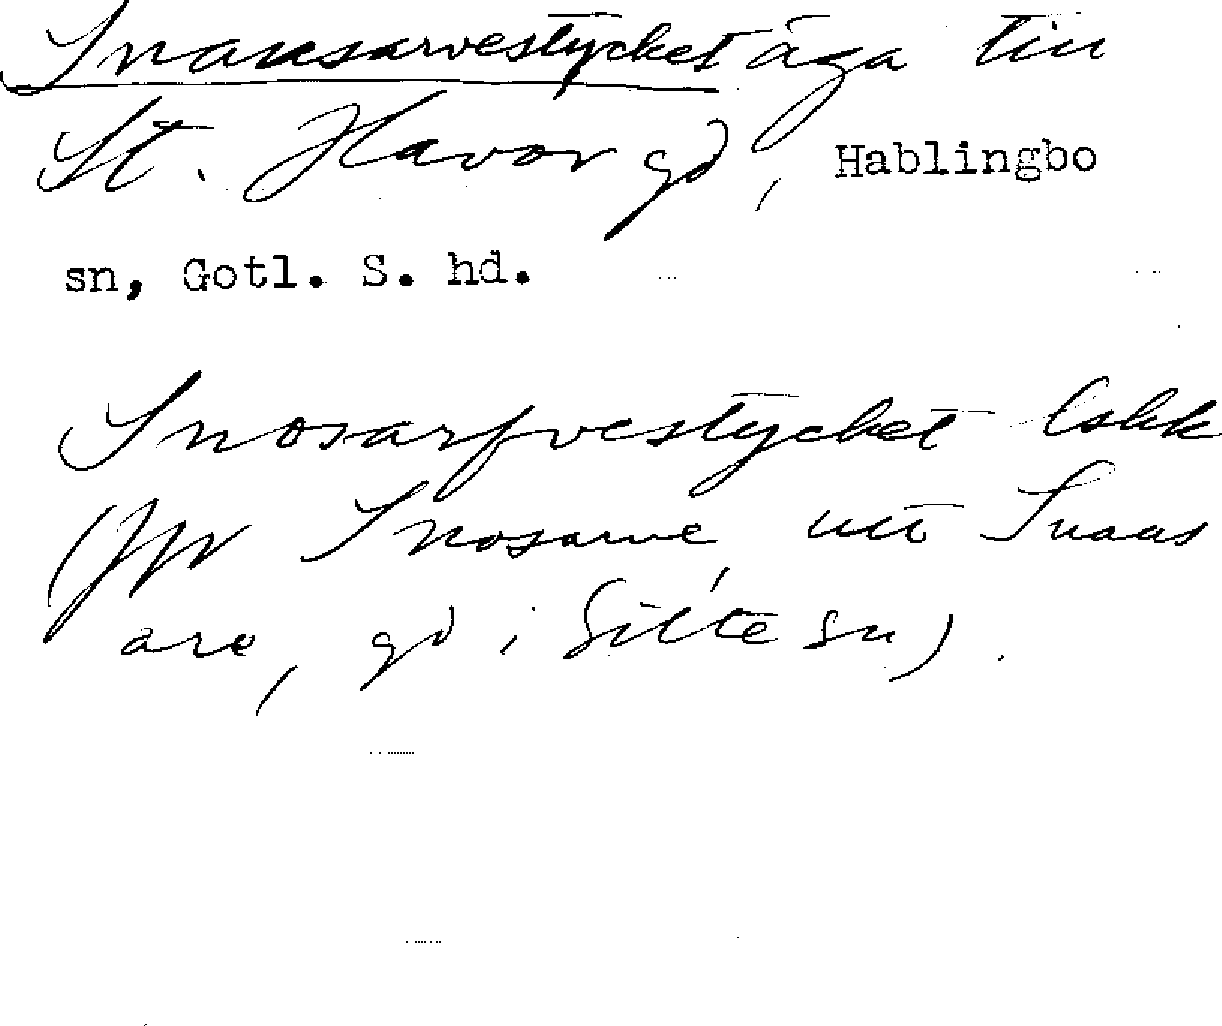 Snausarvestycket äga till
St. Havor gd, Hablingbo
sn, Gotl. S. hd.
Snosarfvestycket Lskk
(Jfr Snosarve, utt Snaus
are, gd i Silte sn).